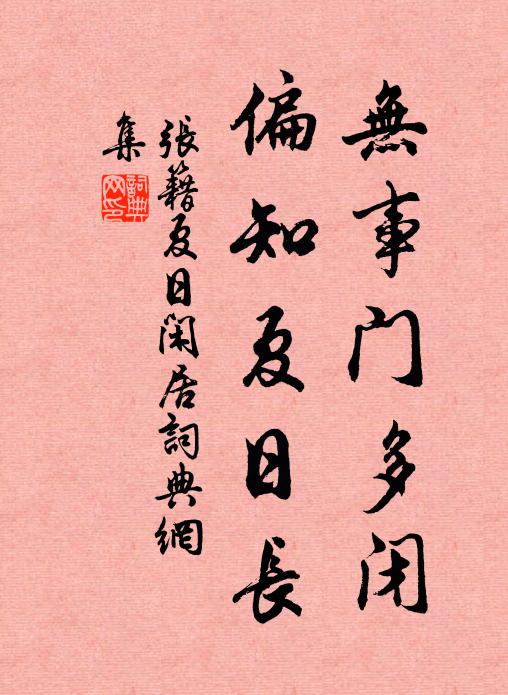 無事門多闭
偏知夏日長
張籍夏日閑居詞典網
集
詞典
网印